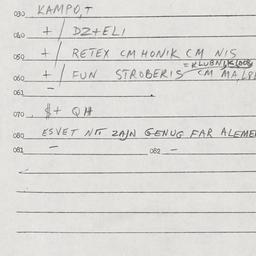 030 KAMPO,T
040 + / DZ+ELI
050 + / RETEX CM HONIK CM NIS
= KLUBNIK(OOB)
060 + / FUN STROBERIS CM MA,L8
061 –
070 $+ QH
080 ESVET NIT ZAJN GENUG FAR ALEME
081 – 082 –